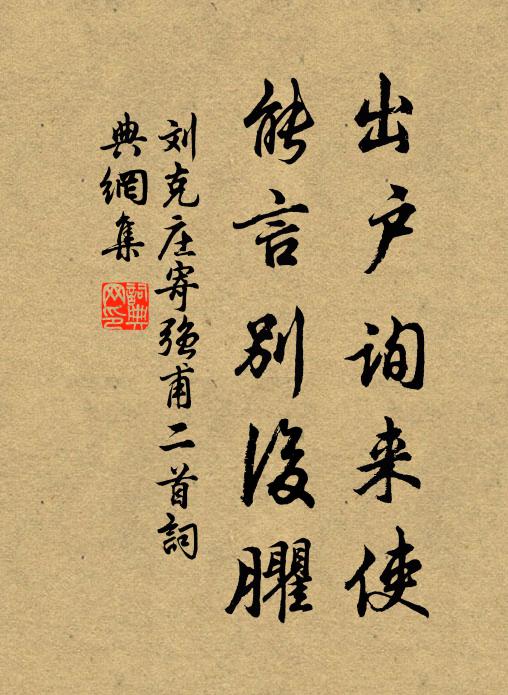 出户询来使
能言别後臞
刘克庄寄强甫二首詞
典網集
詞典网印